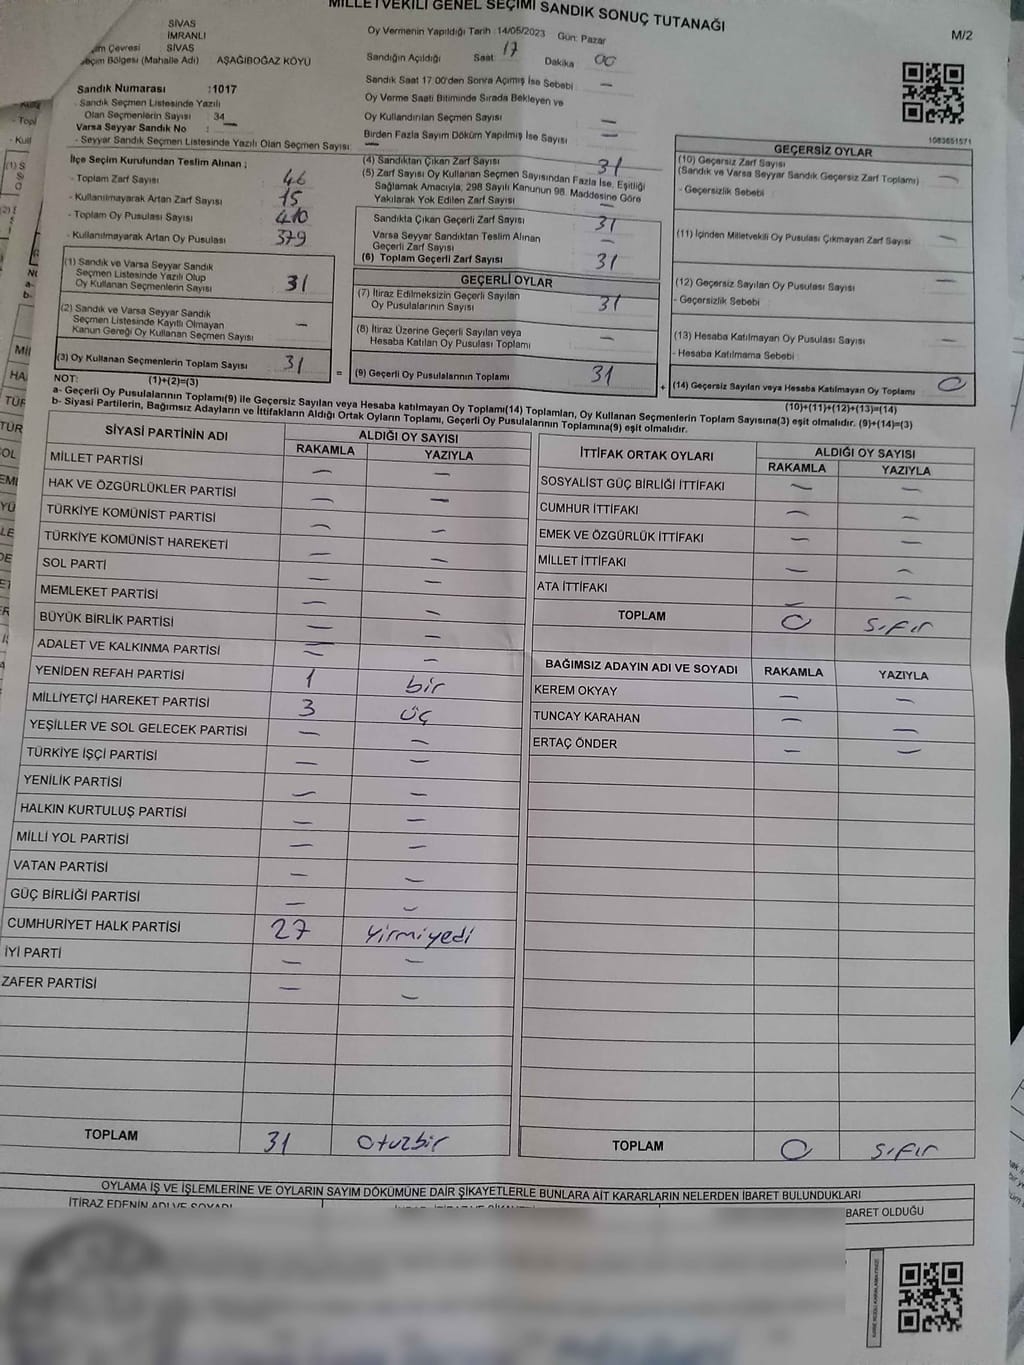 MİLLETVEKİLİ GENEL SEÇİMİ SANDIK SONUÇ TUTANAĞI
M/2
SİVAS
İMRANLI
Çevresi SİVAS
Seçim Bölgesi (Mahalle Adı) AŞAĞIBOĞAZ KÖYÜ
Oy Vermenin Yapıldığı Tarih : 14/05/2023 Gün: Pazar
Sandığın Açıldığı Saat 17 Dakika 00
Sandık Saat 17:00'den Sonra Açılmış İse Sebebi —
Oy Verme Saati Bitiminde Sırada Bekleyen ve
Oy Kullandırılan Seçmen Sayısı —
Birden Fazla Sayım Döküm Yapılmış İse Sayısı —
Sandık Numarası : 1017
- Sandık Seçmen Listesinde Yazılı
Olan Seçmenlerin Sayısı : 34
Varsa Seyyar Sandık No :
- Seyyar Sandık Seçmen Listesinde Yazılı Olan Seçmen Sayısı: —
1083651571
İlçe Seçim Kurulundan Teslim Alınan ;
- Toplam Zarf Sayısı 46
- Kullanılmayarak Artan Zarf Sayısı 15
- Toplam Oy Pusulası Sayısı 410
- Kullanılmayarak Artan Oy Pusulası 379
(1) Sandık ve Varsa Seyyar Sandık
Seçmen Listesinde Yazılı Olup
Oy Kullanan Seçmenlerin Sayısı 31
(2) Sandık ve Varsa Seyyar Sandık
Seçmen Listesinde Kayıtlı Olmayan
Kanun Gereği Oy Kullanan Seçmen Sayısı —
(3) Oy Kullanan Seçmenlerin Toplam Sayısı 31
(4) Sandıktan Çıkan Zarf Sayısı 31
(5) Zarf Sayısı Oy Kullanan Seçmen Sayısından Fazla İse, Eşitliği
Sağlamak Amacıyla, 298 Sayılı Kanunun 98. Maddesine Göre
Yakılarak Yok Edilen Zarf Sayısı —
Sandıkta Çıkan Geçerli Zarf Sayısı 31
Varsa Seyyar Sandıktan Teslim Alınan
Geçerli Zarf Sayısı —
(6) Toplam Geçerli Zarf Sayısı 31
GEÇERLİ OYLAR
(7) İtiraz Edilmeksizin Geçerli Sayılan
Oy Pusulalarının Sayısı 31
(8) İtiraz Üzerine Geçerli Sayılan veya
Hesaba Katılan Oy Pusulası Toplamı —
= (9) Geçerli Oy Pusulalarının Toplamı 31
GEÇERSİZ OYLAR
(10) Geçersiz Zarf Sayısı
(Sandık ve Varsa Seyyar Sandık Geçersiz Zarf Toplamı) —
- Geçersizlik Sebebi :
(11) İçinden Milletvekili Oy Pusulası Çıkmayan Zarf Sayısı —
(12) Geçersiz Sayılan Oy Pusulası Sayısı —
- Geçersizlik Sebebi :
(13) Hesaba Katılmayan Oy Pusulası Sayısı —
- Hesaba Katılmama Sebebi :
+ (14) Geçersiz Sayılan veya Hesaba Katılmayan Oy Toplamı 0
NOT: (1)+(2)=(3)
(10)+(11)+(12)+(13)=(14)
a- Geçerli Oy Pusulalarının Toplamı(9) ile Geçersiz Sayılan veya Hesaba katılmayan Oy Toplamı(14) Toplamları, Oy Kullanan Seçmenlerin Toplam Sayısına(3) eşit olmalıdır. (9)+(14)=(3)
b- Siyasi Partilerin, Bağımsız Adayların ve İttifakların Aldığı Ortak Oyların Toplamı, Geçerli Oy Pusulalarının Toplamına(9) eşit olmalıdır.
SİYASİ PARTİNİN ADI ALDIĞI OY SAYISI
RAKAMLA YAZIYLA
MİLLET PARTİSİ — —
HAK VE ÖZGÜRLÜKLER PARTİSİ — —
TÜRKİYE KOMÜNİST PARTİSİ — —
TÜRKİYE KOMÜNİST HAREKETİ — —
SOL PARTİ — —
MEMLEKET PARTİSİ — —
BÜYÜK BİRLİK PARTİSİ — —
ADALET VE KALKINMA PARTİSİ — —
YENİDEN REFAH PARTİSİ 1 bir
MİLLİYETÇİ HAREKET PARTİSİ 3 üç
YEŞİLLER VE SOL GELECEK PARTİSİ — —
TÜRKİYE İŞÇİ PARTİSİ — —
YENİLİK PARTİSİ — —
HALKIN KURTULUŞ PARTİSİ — —
MİLLİ YOL PARTİSİ — —
VATAN PARTİSİ — —
GÜÇ BİRLİĞİ PARTİSİ — —
CUMHURİYET HALK PARTİSİ 27 yirmiyedi
İYİ PARTİ — —
ZAFER PARTİSİ — —
TOPLAM 31 otuzbir
İTTİFAK ORTAK OYLARI ALDIĞI OY SAYISI
RAKAMLA YAZIYLA
SOSYALİST GÜÇ BİRLİĞİ İTTİFAKI — —
CUMHUR İTTİFAKI — —
EMEK VE ÖZGÜRLÜK İTTİFAKI — —
MİLLET İTTİFAKI — —
ATA İTTİFAKI — —
TOPLAM 0 sıfır
BAĞIMSIZ ADAYIN ADI VE SOYADI RAKAMLA YAZIYLA
KEREM OKYAY — —
TUNCAY KARAHAN — —
ERTAÇ ÖNDER — —
TOPLAM 0 sıfır
OYLAMA İŞ VE İŞLEMLERİNE VE OYLARIN SAYIM DÖKÜMÜNE DAİR ŞİKAYETLERLE BUNLARA AİT KARARLARIN NELERDEN İBARET BULUNDUKLARI
İTİRAZ EDENİN ADI VE SOYADI
BARET OLDUĞU